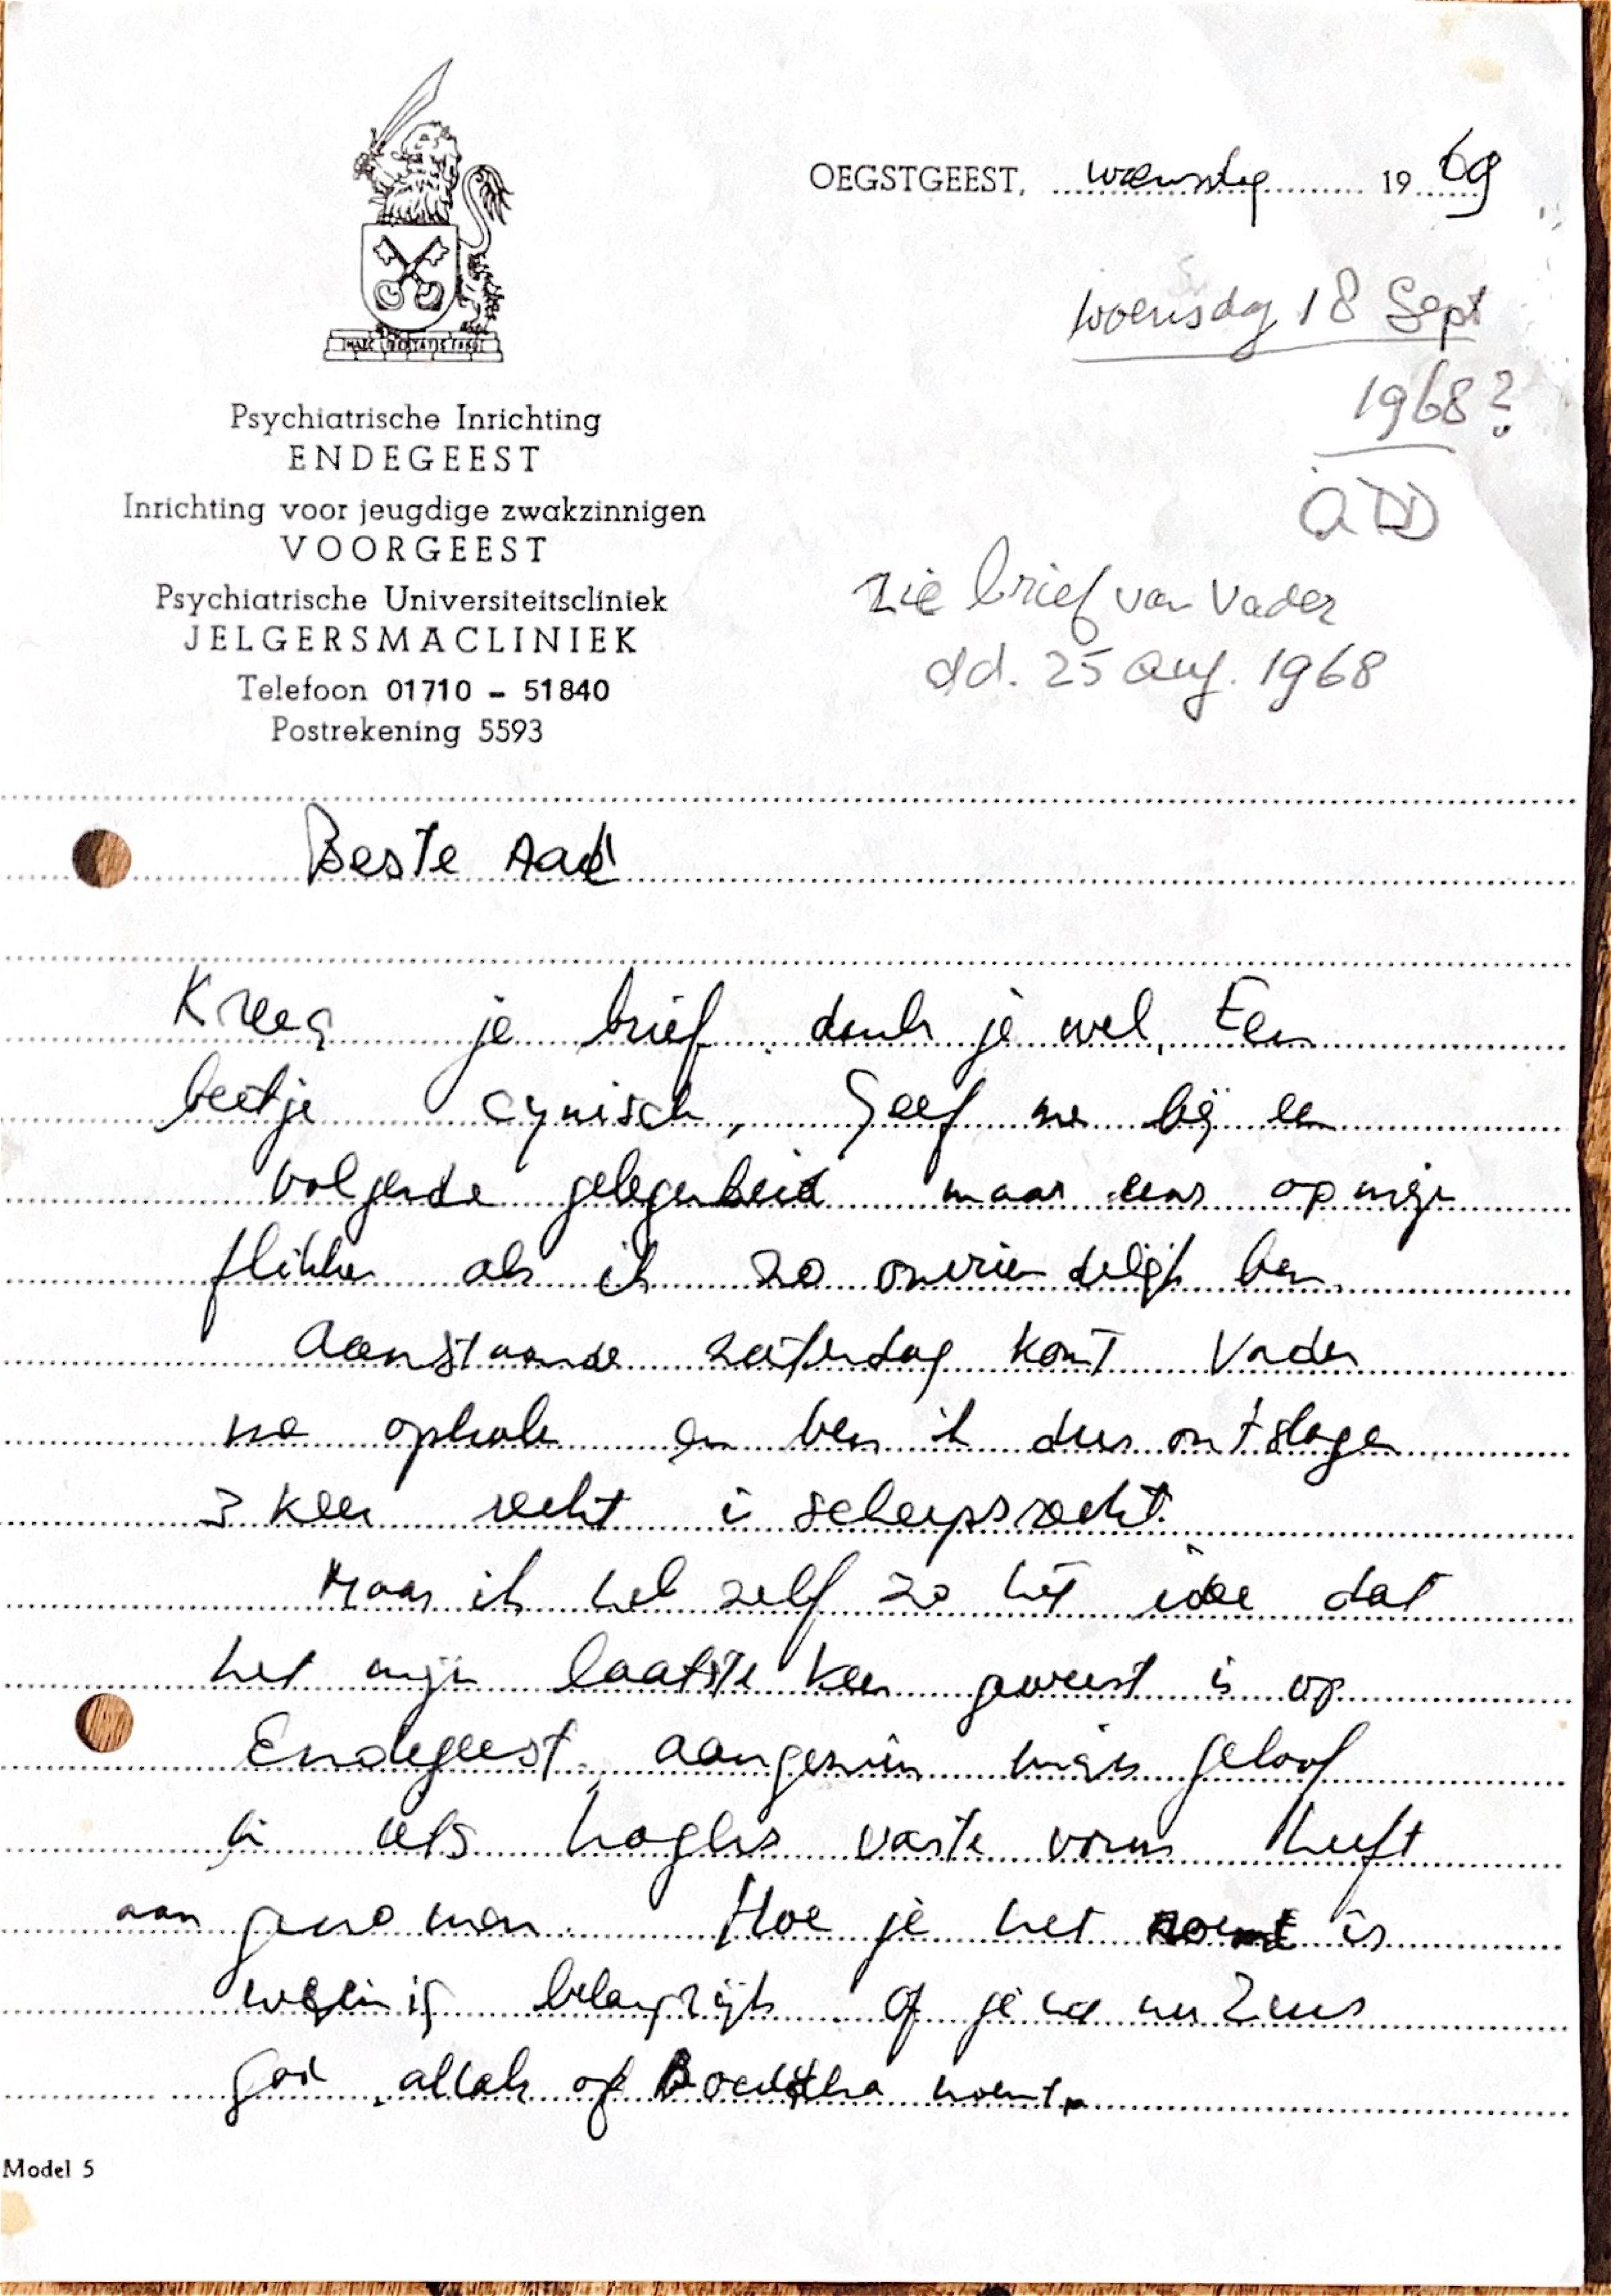 OEGSTGEEST, woensdag 19 69
woensdag 18 Sept
1968?
QDD
zie brief van Vader
dd. 25 aug. 1968
HAEC LIBERTATIS ERGO
Psychiatrische Inrichting
ENDEGEEST
Inrichting voor jeugdige zwakzinnigen
VOORGEEST
Psychiatrische Universiteitscliniek
JELGERSMACLINIEK
Telefoon 01710 - 51840
Postrekening 5593
Beste Aad
Kreeg je brief, dank je wel. Een
beetje cynisch, Geef me bij een
volgende gelegenheid maar eens op mijn
flikker als ik zo onvriendelijk ben.
Aanstaande zaterdag komt Vader
me ophalen en ben ik dus ontslagen
3 keer recht is scheepsrecht.
Maar ik heb zelf zo het idee dat
het mijn laatste keer geweest is op
Endegeest, aangezien mijn geloof
in iets hogers vaste vorm heeft
aan genomen. Hoe je het noemt is
weinig belangrijk of je het nu Zeus
God, allah of Boeddha noemt.
Model 5